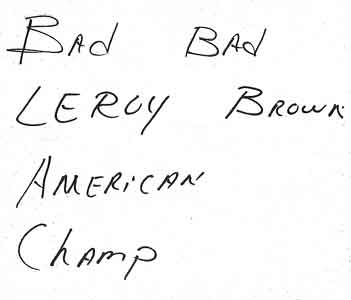 BAD BAD
LEROY BROWN
AMERICAN
CHAMP